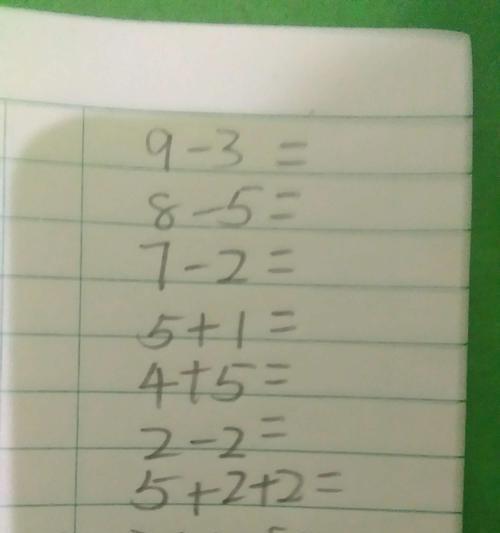 9-3=
8-5=
7-2=
5+1=
4+5=
2-2=
5+2+2=